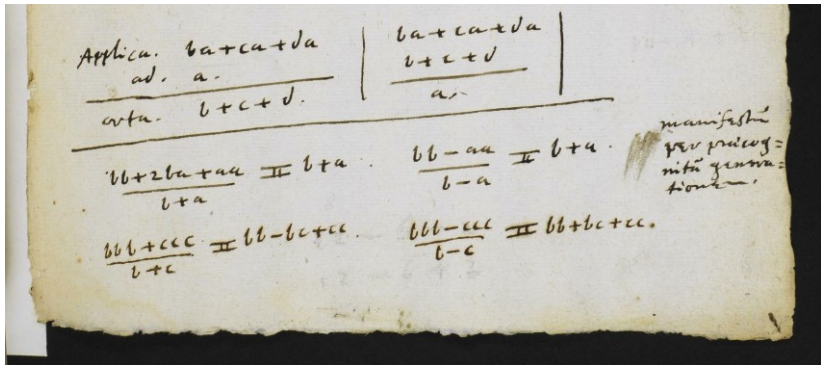 Applica. ba+ca+da | ba+ca+da |
ad. a. | b+c+d |
orta. b+c+d. | a. |
bb+2ba+aa / b+a = b+a. bb-aa / b-a = b+a.
manifestū
per præcog=
nitā genera=
tionem.
bbb+ccc / b+c = bb-bc+cc. bbb-ccc / b-c = bb+bc+cc.